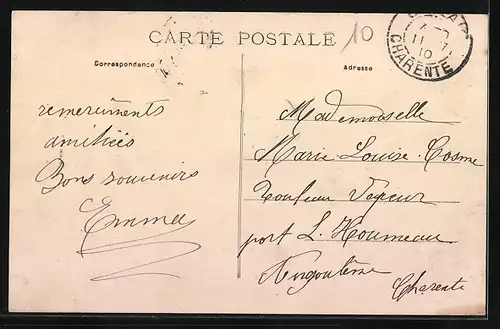 CARTE POSTALE
10
Correspondance
Adresse
11
10
CHARENTE
remerciments
amitiées
Bons souvenirs
Emma
Mademoiselle
Marie-Louise Cosme
Rouleau Vapeur
port L. Houmeau
Angoulême
Charente